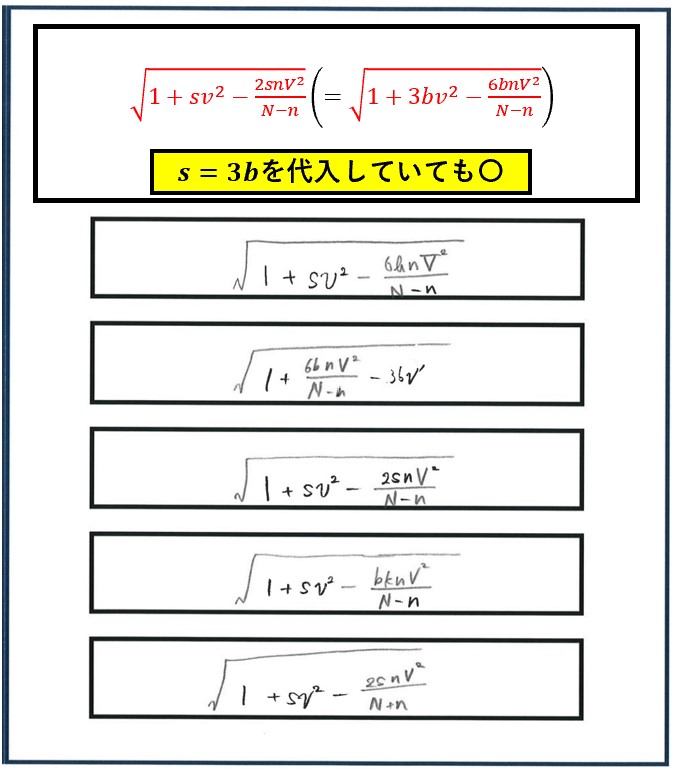 √(1 + sv² − 2snV²/(N−n)) (= √(1 + 3bv² − 6bnV²/(N−n)))
s = 3bを代入していても〇
√(1 + sv² − 6bnV²/(N−n))
√(1 + 6bnV²/(N−n) − 3bv²)
√(1 + sv² − 2snV²/(N−n))
√(1 + sv² − bknV²/(N−n))
√(1 + sv² − 2snV²/(N+n))